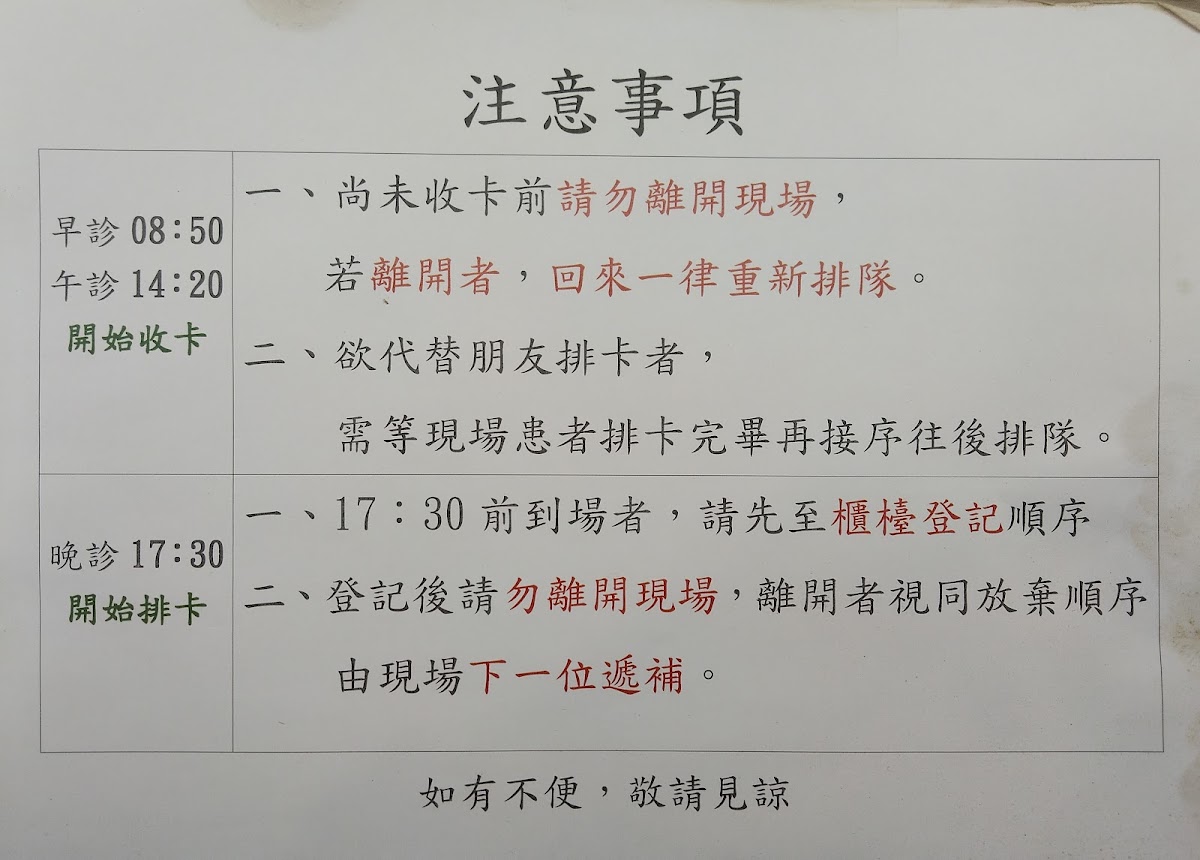 注意事項
早診 08:50
午診 14:20
開始收卡
一、尚未收卡前請勿離開現場，
若離開者，回來一律重新排隊。
二、欲代替朋友排卡者，
需等現場患者排卡完畢再接序往後排隊。
晚診 17:30
開始排卡
一、17：30 前到場者，請先至櫃檯登記順序
二、登記後請勿離開現場，離開者視同放棄順序
由現場下一位遞補。
如有不便，敬請見諒